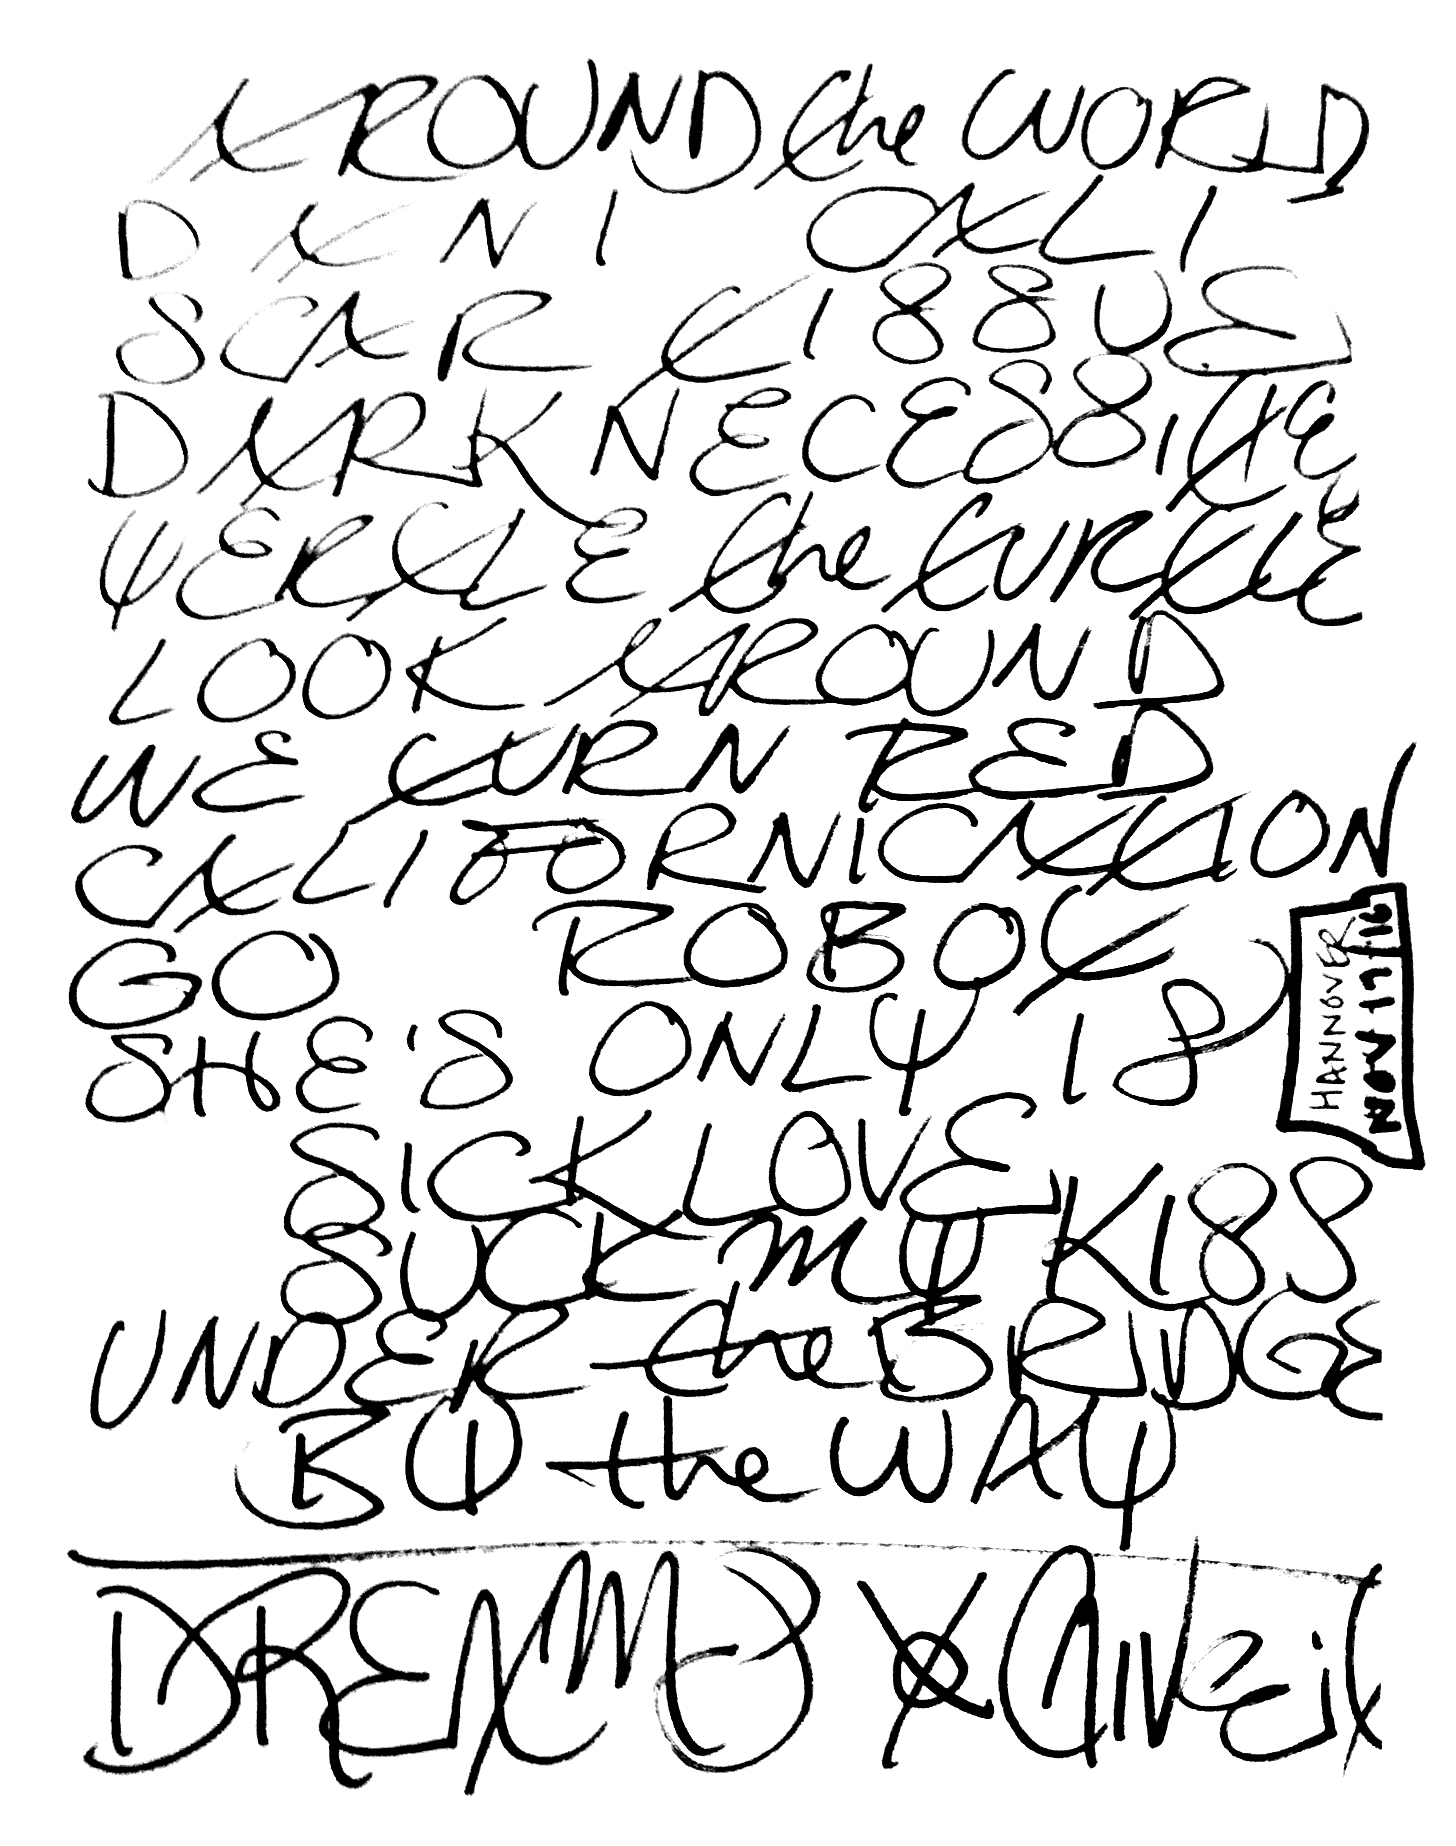 AROUND the WORLD
DANI CALI
SCAR TISSUE
DARK NECESSITIE
YERTLE the TURTLE
LOOK AROUND
WE TURN RED
CALIFORNICATION
GO ROBOT
SHE'S ONLY 18
SICK LOVE
SUCK MY KISS
UNDER the BRIDGE
BY the WAY
DREAMS
HANNOVER
NOV 17/16